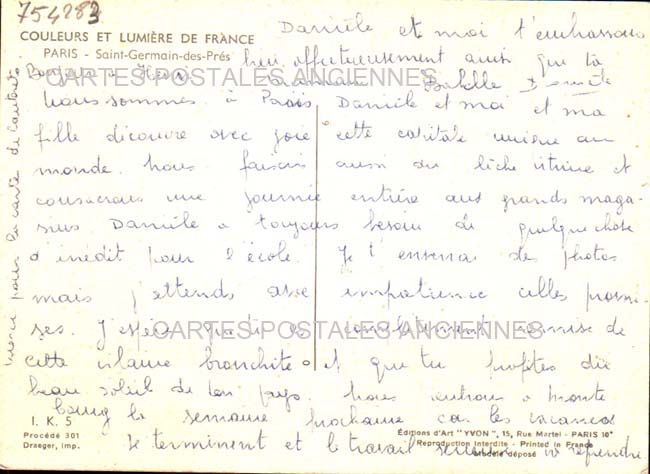 754283
Danièle et moi t'embrassons
COULEURS ET LUMIÈRE DE FRANCE
PARIS - Saint-Germain-des-Prés
bien affectueusement ainsi que ta
Bonjour à
maman
CARTES POSTALES ANCIENNES
Nous sommes à Paris, Danièle et moi et ma
fille découvre avec joie cette capitale unique au
monde. Nous faisons aussi du lèche vitrine et
consacrons une journée entière aux grands maga-
sins Danièle a toujours besoin de quelque chose
d'inédit pour l'école. Je t'enverrai des photos
mais j'attends avec impatience celles promi-
ses. J'espère que tu es complètement remise de
CARTES POSTALES ANCIENNES
cette vilaine bronchite et que tu profites du
beau soleil de ton pays. Nous rentrons à
bourg la semaine prochaine car les vacances
se terminent et le travail reprendre
merci pour la carte de
I. K. 5
Procédé 301
Draeger, imp.
Éditions d'Art "YVON", 15, Rue Martel - PARIS 10e
Reproduction Interdite - Printed in France
Modèle déposé